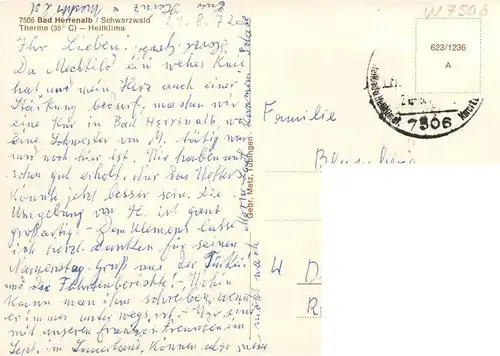 7506 Bad Herrenalb / Schwarzwald
Therme (35° C) – Heilklima
21.8.72
W 7506
623/1236
A
7506
Ihr Lieben!
Da Mechtild ein wehes Knie
hat, und mein Herz auch einer
Stärkung bedurf, machen wir
eine Kur in Bad Herrenalb, wo
eine Schwester von M. tätig war
und noch hier ist. Wir haben uns
schon gut erholt, nur das Wetter
könnte jetzt besser sein. Die
Umgebung von H. ist ganz
großartig! – Dem Klemens lasse
ich herzl. danken für seinen
Namenstag-Gruß aus der Türkei
und die Fahrtenberichte. – Wohin
kann man ihm schreiben, wenn
er immer unterwegs ist. – Wir sind
mit unseren französ. Freunden im
Sept. im Sauerland, können also
Gebr. Metz, Tübingen
Familie
W D